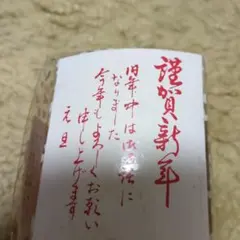 謹賀新年
旧年中はお世話に
なりました
今年もよろしくお願い
申し上げます
元旦